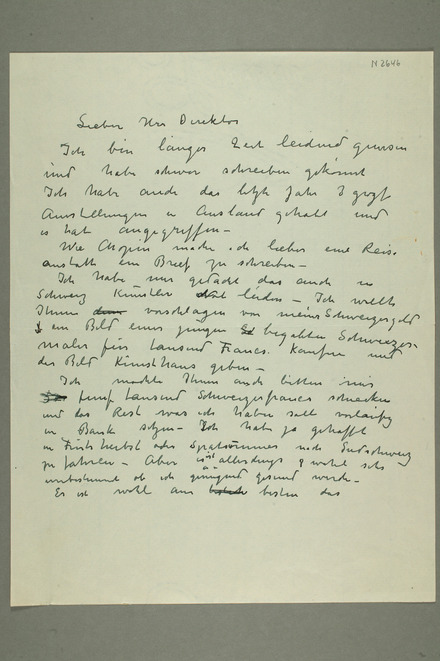 N 2646
Lieber Herr Direktor
Ich bin länger Zeit leidend gewesen
und habe schwer schreiben gekonnt
Ich habe auch das letzte Jahr 3 große
Ausstellungen in Ausland gehabt und
es hat angegriffen –
Wie Chopin mache ich lieber eine Reise
anstatt ein Brief zu schreiben –
Ich habe mir gedacht das auch in
Schweiz Künstler leiden – Ich wollte
Ihnen vorschlagen von meine Schweizergeld
ein Bild eines jungen begabten Schweizer-
maler für tausend Francs. Kaufen und
das Bild Kunsthaus geben –
Ich möchte Ihnen auch bitten mir
fünf tausend Schweizerfrancs schicken
und das Rest was ich haben soll vorläufig
in Bank setzen – Ich habe ja gehofft
in Früh herbst oder Spätsommer nach Südschweiz
zu fahren – Aber es ist allerdings wohl sehr
unbestimmt ob ich genügend gesund werde –
Es ist wohl am besten das